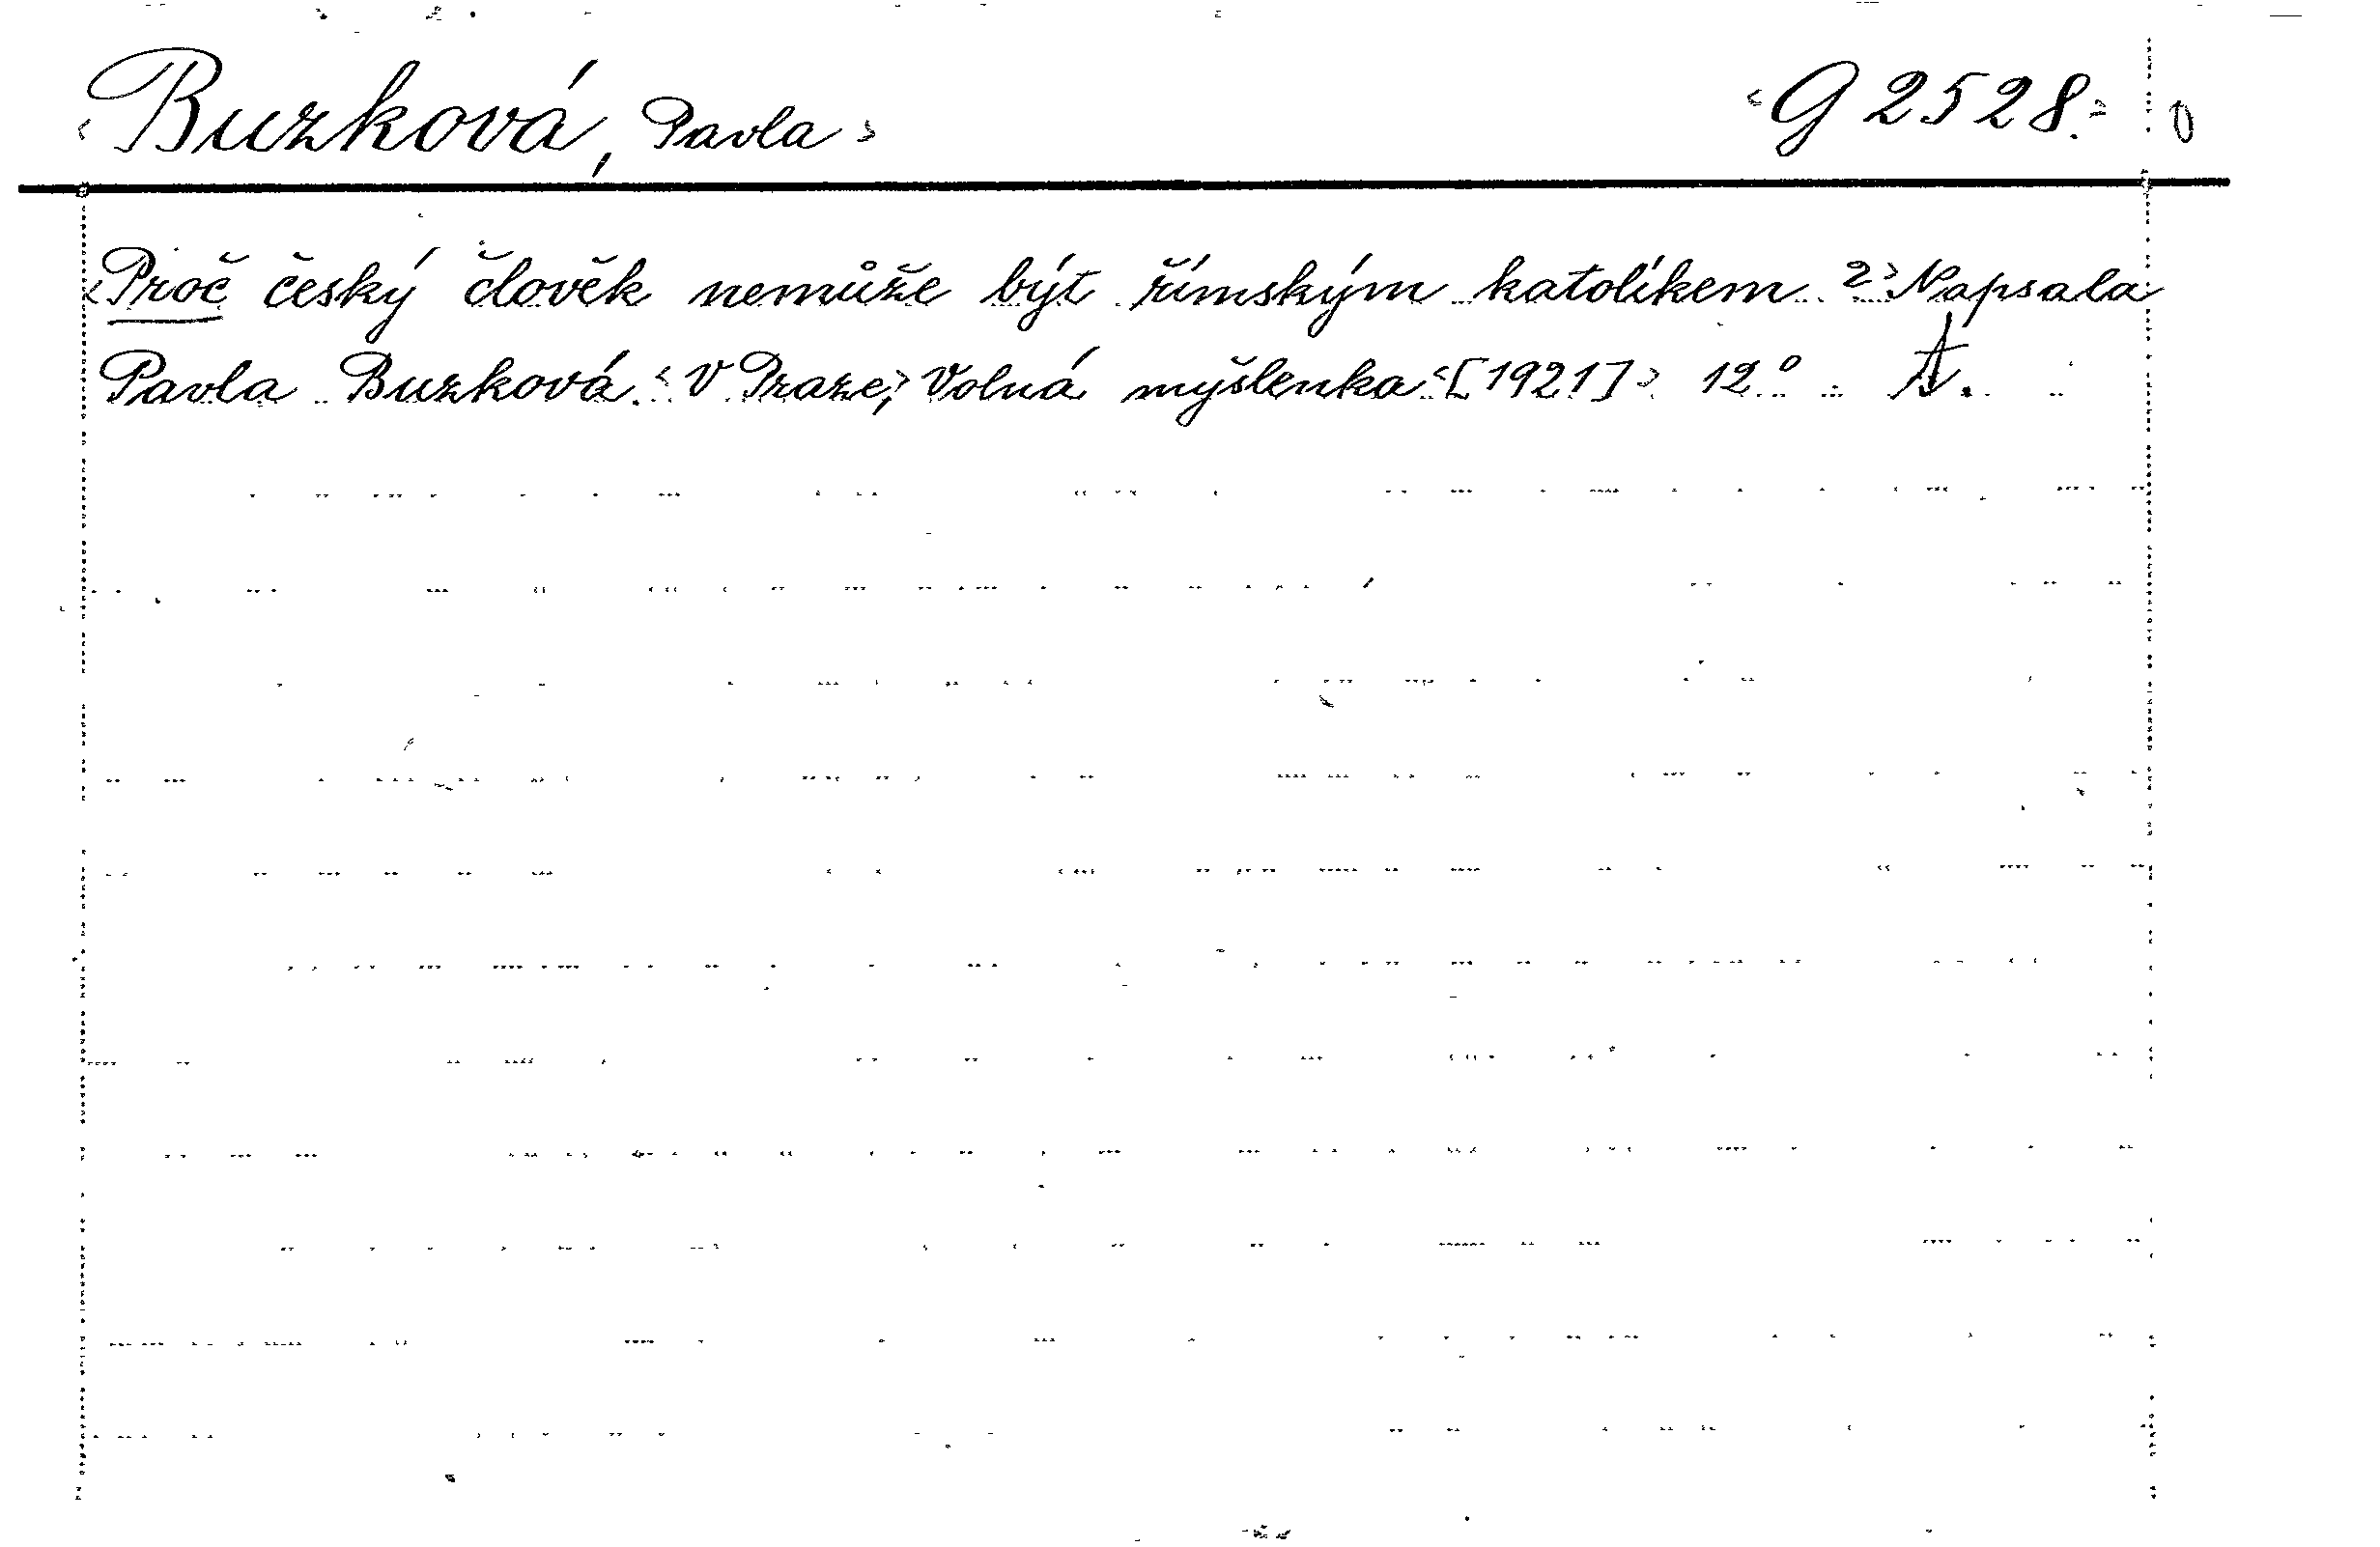 ‹Buzková, Pavla›
‹G 2528.› 0
‹Proč český člověk nemůže být římským katolíkem ?› Napsala
Pavla Buzková. ‹V Praze,› Volná myšlenka ‹[1921]› 12.º